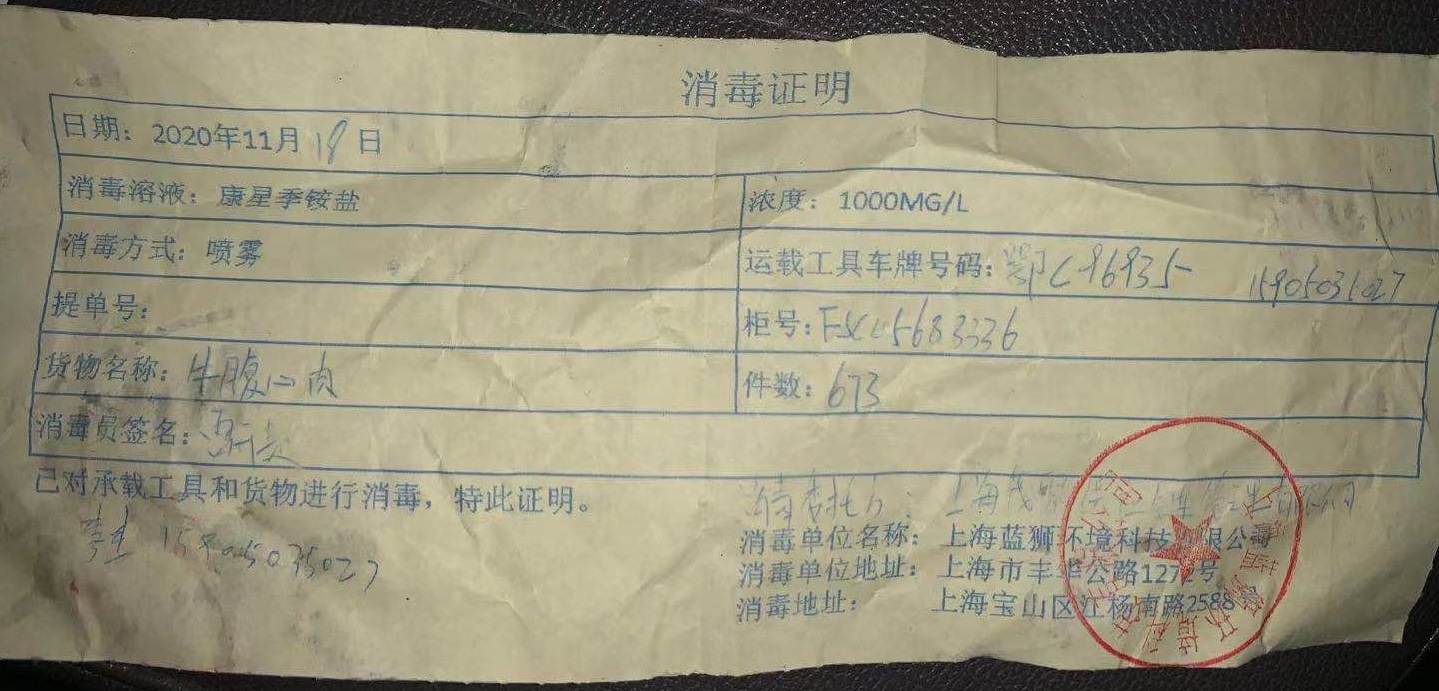 消毒证明
日期：2020年11月18日
消毒溶液：康星季铵盐
浓度：1000MG/L
消毒方式：喷雾
运载工具车牌号码：鄂C96935 15905035027
提单号：
柜号：FSCU5683336
货物名称：牛腹心肉
件数：673
消毒员签名：
已对承载工具和货物进行消毒，特此证明。
15905035027
消毒委托方：上海
消毒单位名称：上海蓝狮环境科技有限公司
消毒单位地址：上海市丰华公路1272号
消毒地址：上海宝山区江杨南路2588